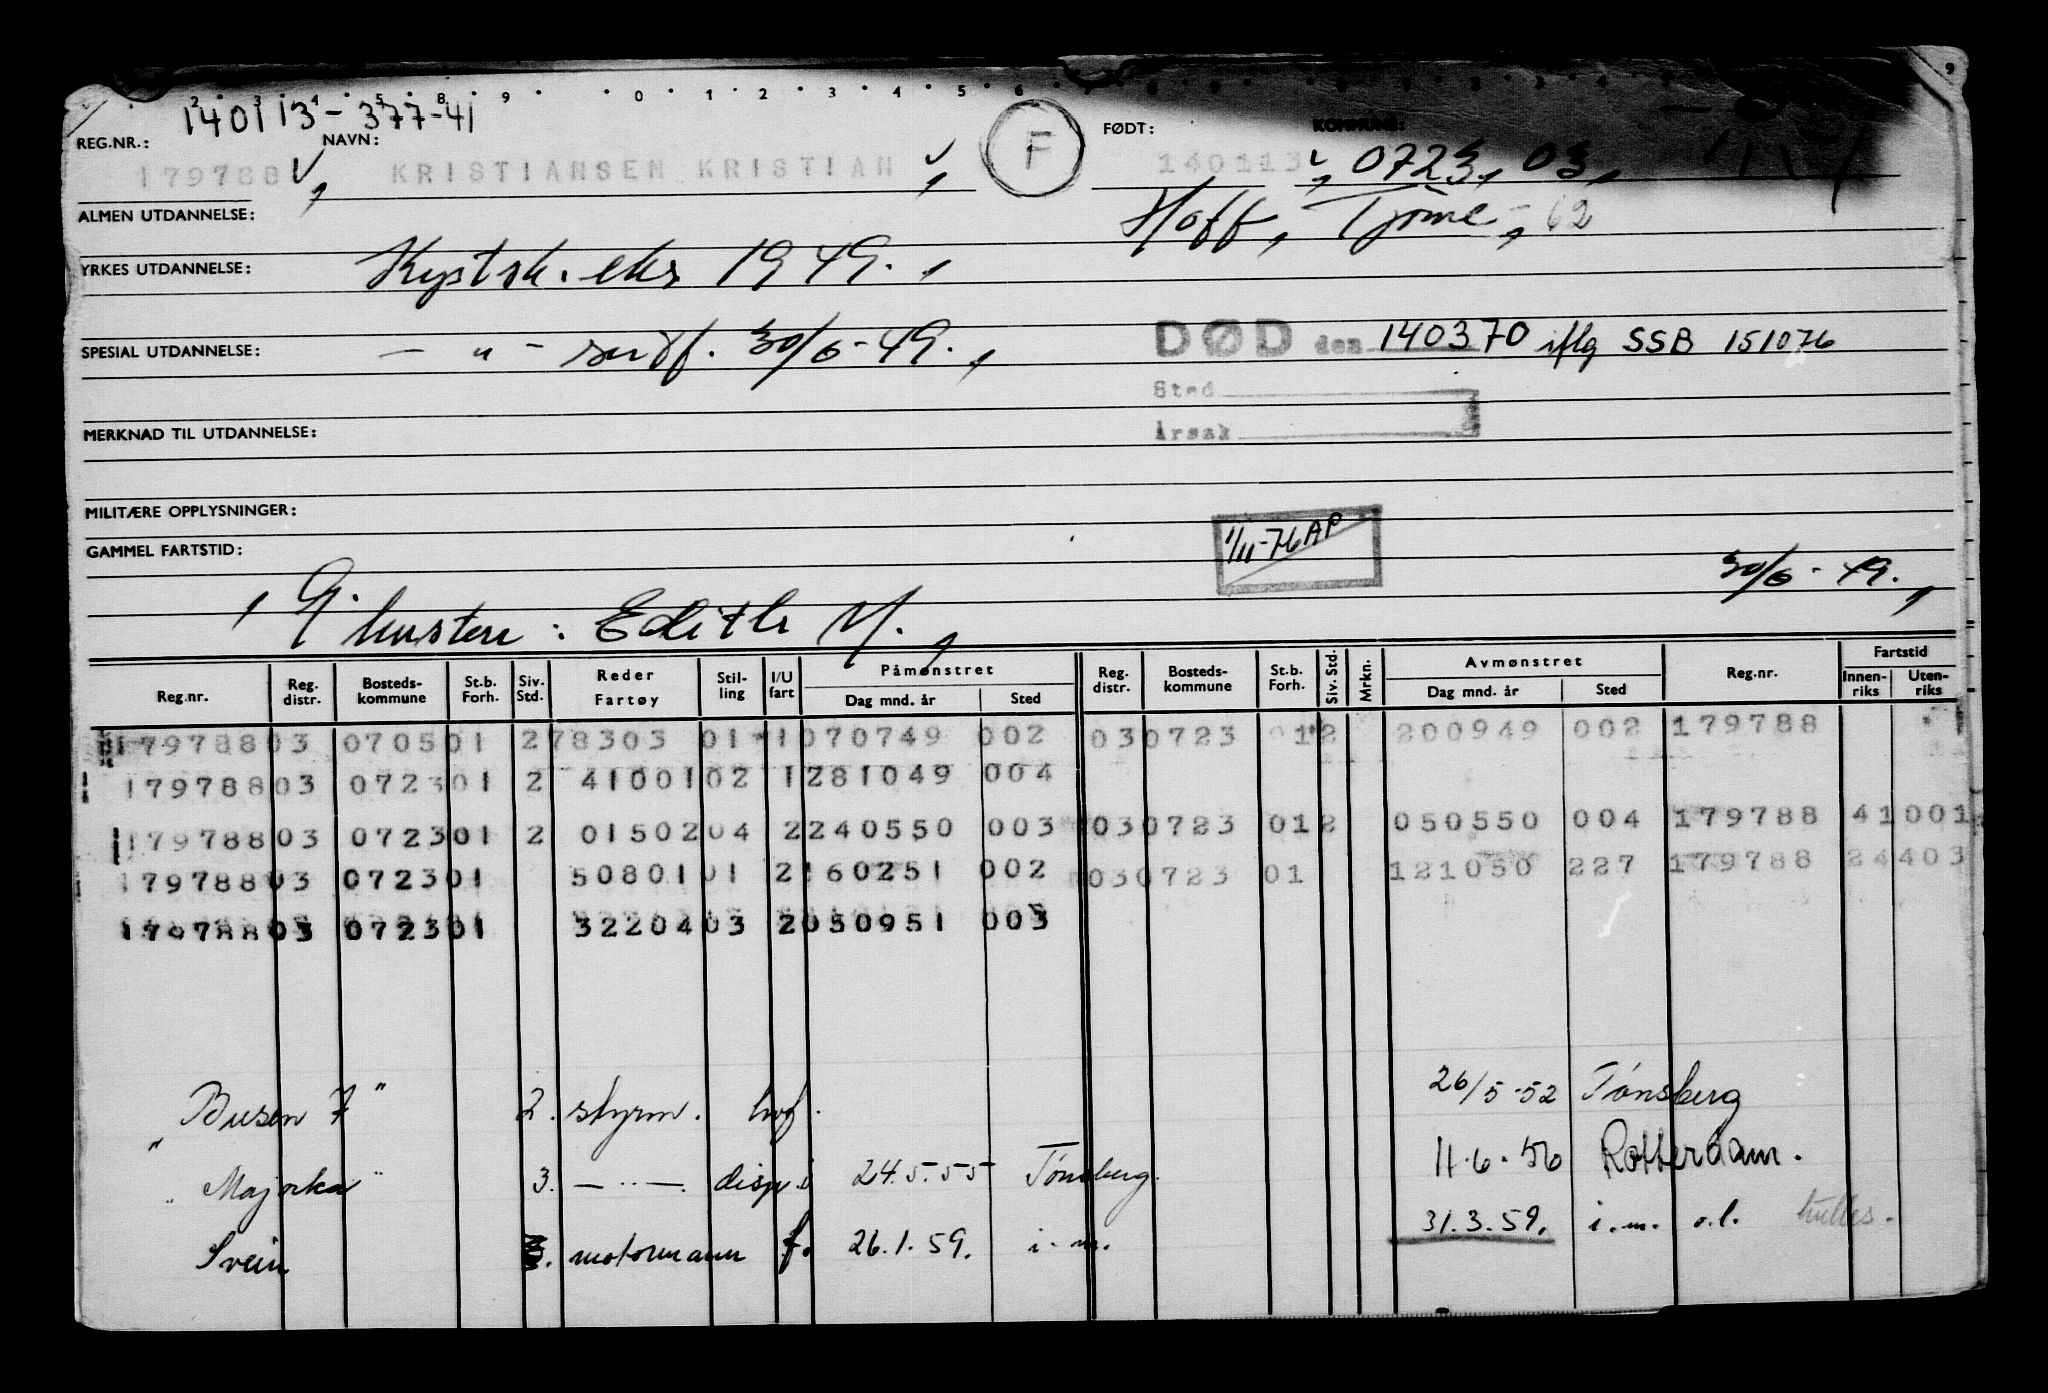 140113-377-41
REG.NR.: NAVN: FØDT: KOMMUNE:
179788 KRISTIANSEN KRISTIAN F 140113 0723, 03,
ALMEN UTDANNELSE: Hoff, Tjøme, 62
YRKES UTDANNELSE: Kystsk. eks 1949.
SPESIAL UTDANNELSE: — " — sertf. 30/6-49. DØD den 140370 iflg SSB 151076
Sted
Årsak
MERKNAD TIL UTDANNELSE:
MILITÆRE OPPLYSNINGER:
1/11-76 AP
GAMMEL FARTSTID: 30/6-49.
G. hustru: Edith M.
Reg.nr. Reg. distr. Bosteds-kommune St.b. Forh. Siv. Std. Reder Fartøy Stil-ling I/U fart Påmønstret Dag mnd. år Sted Reg. distr. Bosteds-kommune St.b. Forh. Siv. Std. Mrkn. Avmønstret Dag mnd. år Sted Reg.nr. Fartstid Innen-riks Uten-riks
179788 03 0705 01 2 78303 01 1 070749 002 03 0723 01 2 200949 002 179788
179788 03 0723 01 2 41001 02 1 281049 004
179788 03 0723 01 2 01502 04 2 240550 003 03 0723 01 2 050550 004 179788 41001
179788 03 0723 01 50801 01 2 160251 002 03 0723 01 121050 227 179788 24403
179788 03 0723 01 32204 03 2 050951 003
"Busen 7" 2. styrm. hvf. 26/5-52 Tönsberg
"Majorka" 3. — " —. disp. 24.5.55 Tönsberg. 11.6.56 Rotterdam.
Svein motormann f. 26.1.59. i.m. 31.3.59. i.m. o.l. hulles.